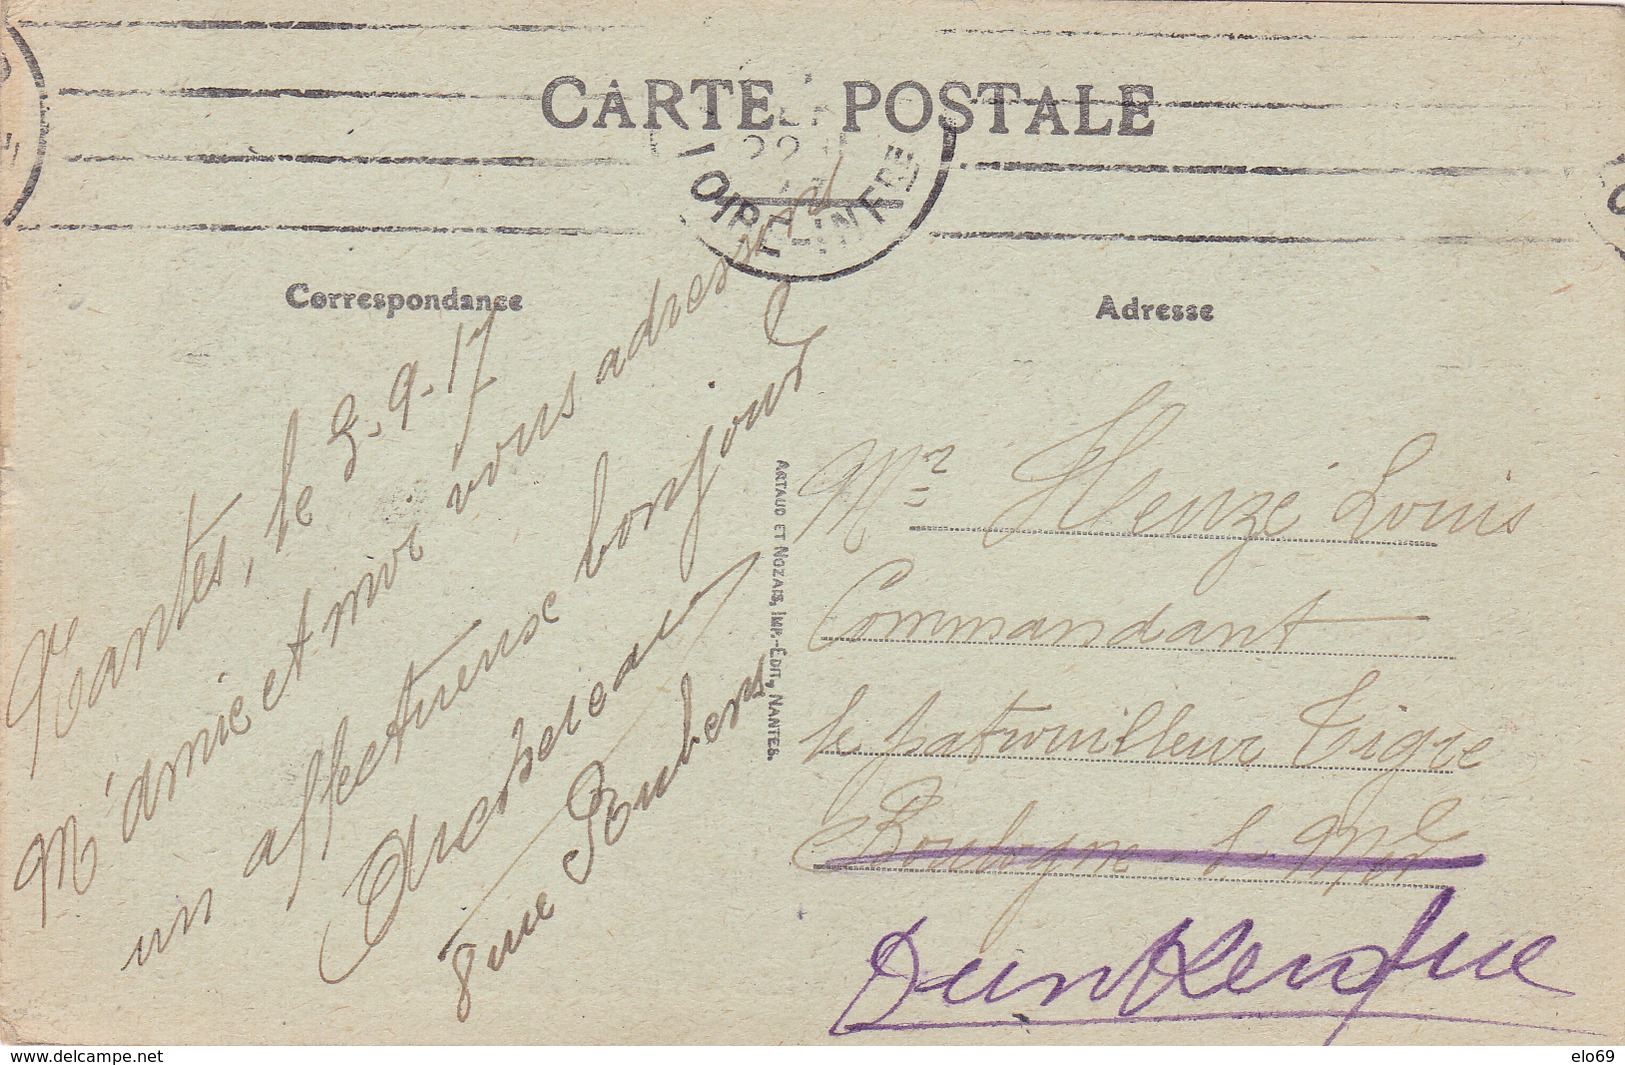 CARTE POSTALE
22
LOIRE-INFRE
Correspondance
Adresse
Nantes, le 3.9.17
M'amie et moi vous adressons
un affectueux bonjour
8 rue Rubens
ARTAUD ET NOZAIS, IMP.-ÉDIT., NANTES.
Mr Henzé Louis
Commandant
le patrouilleur Tigre
Boulogne-s-Mer
Dunkerque
www.delcampe.net
elo69